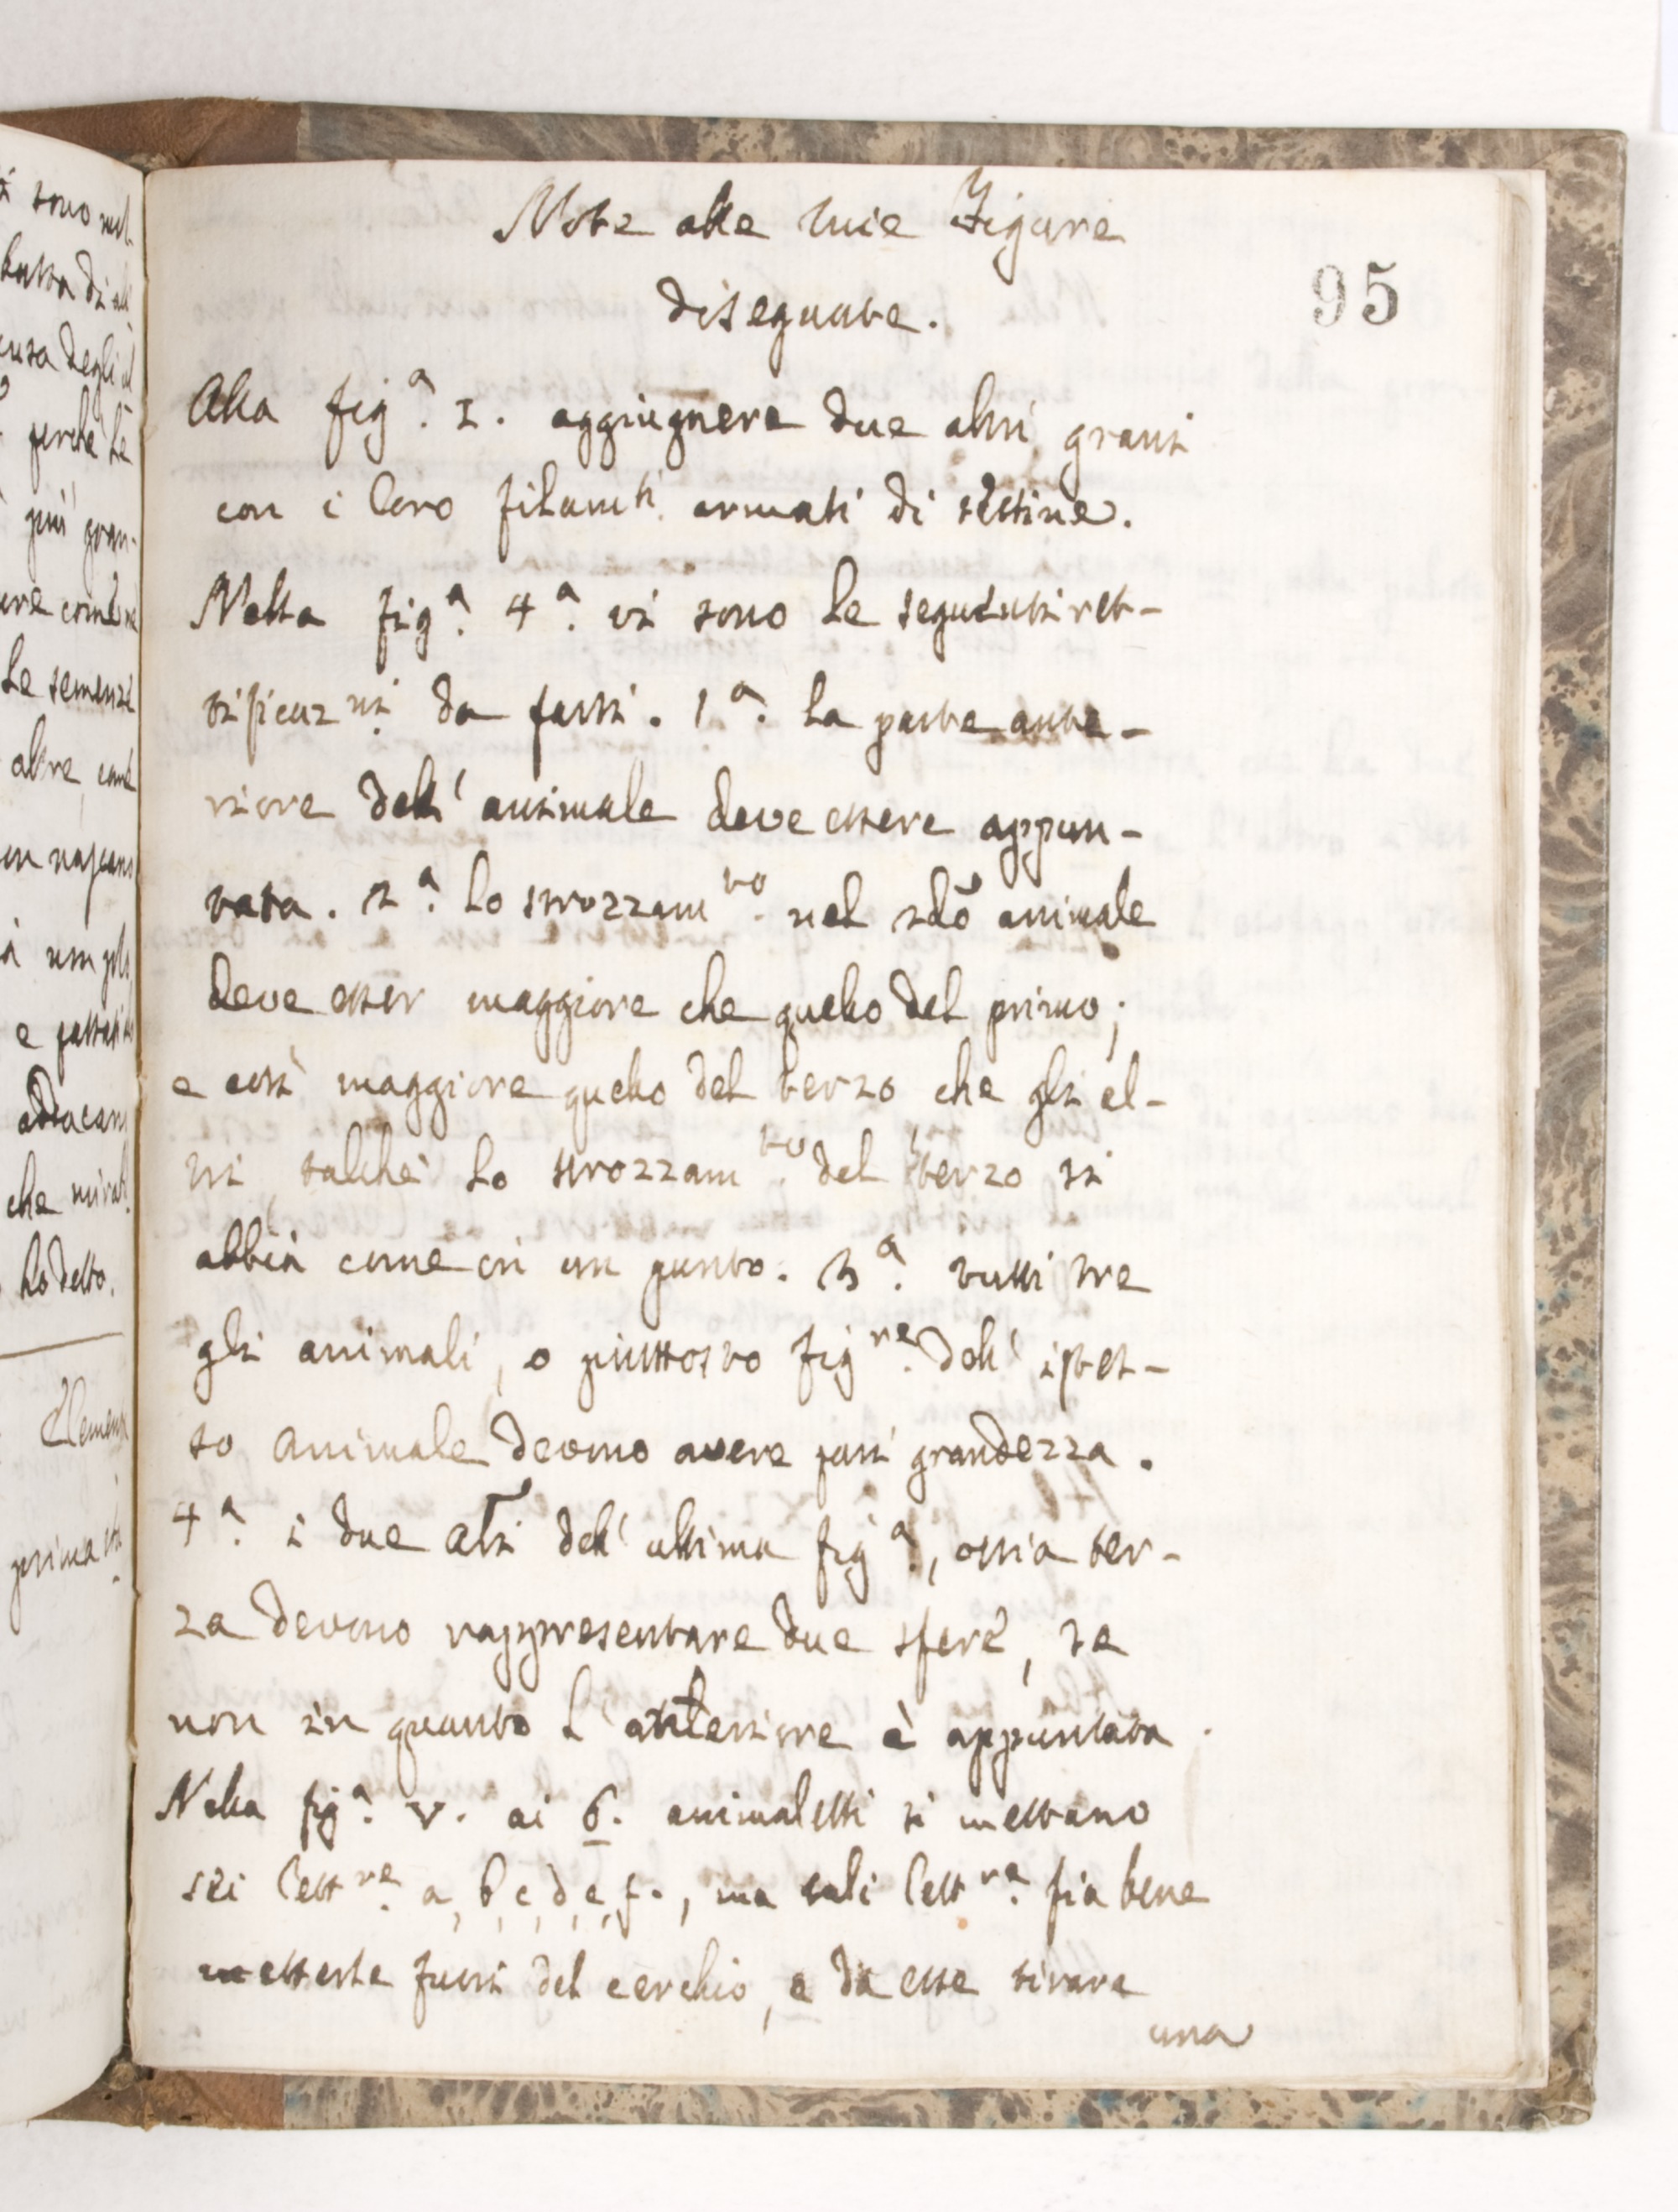 Note alle mie Figure
disegnate.
95
Alla fig.ª I. aggiugnere due altri grani
con i loro filam.ti armati di settine.
Nella fig.ª 4.ª vi sono le seguenti ret-
tificaz.ni da farsi. 1.ª la parte ante-
riore dell' animale deve essere appun-
tata. 2.ª lo strozzam.to nel 2do animale
deve esser maggiore che quello del primo;
e così maggiore quello del terzo che gli al-
tri talchè lo strozzam.to del terzo si
abbia come in un punto. 3.ª tutti tre
gli animali, o piuttosto fig.re dell' istes-
so animale devono avere pari grandezza.
4.ª i due alti dell' ultima fig.ª, ossia ter-
za devono rappresentare due sfere, se
non in quanto l' anteriore è appuntata.
Nella fig.ª V. ai 6. animaletti si mettano
sei lett.re a, b, c, d, e, f., ma tali lett.re fia bene
metterle fuori del cerchio, e da esse tirare
una